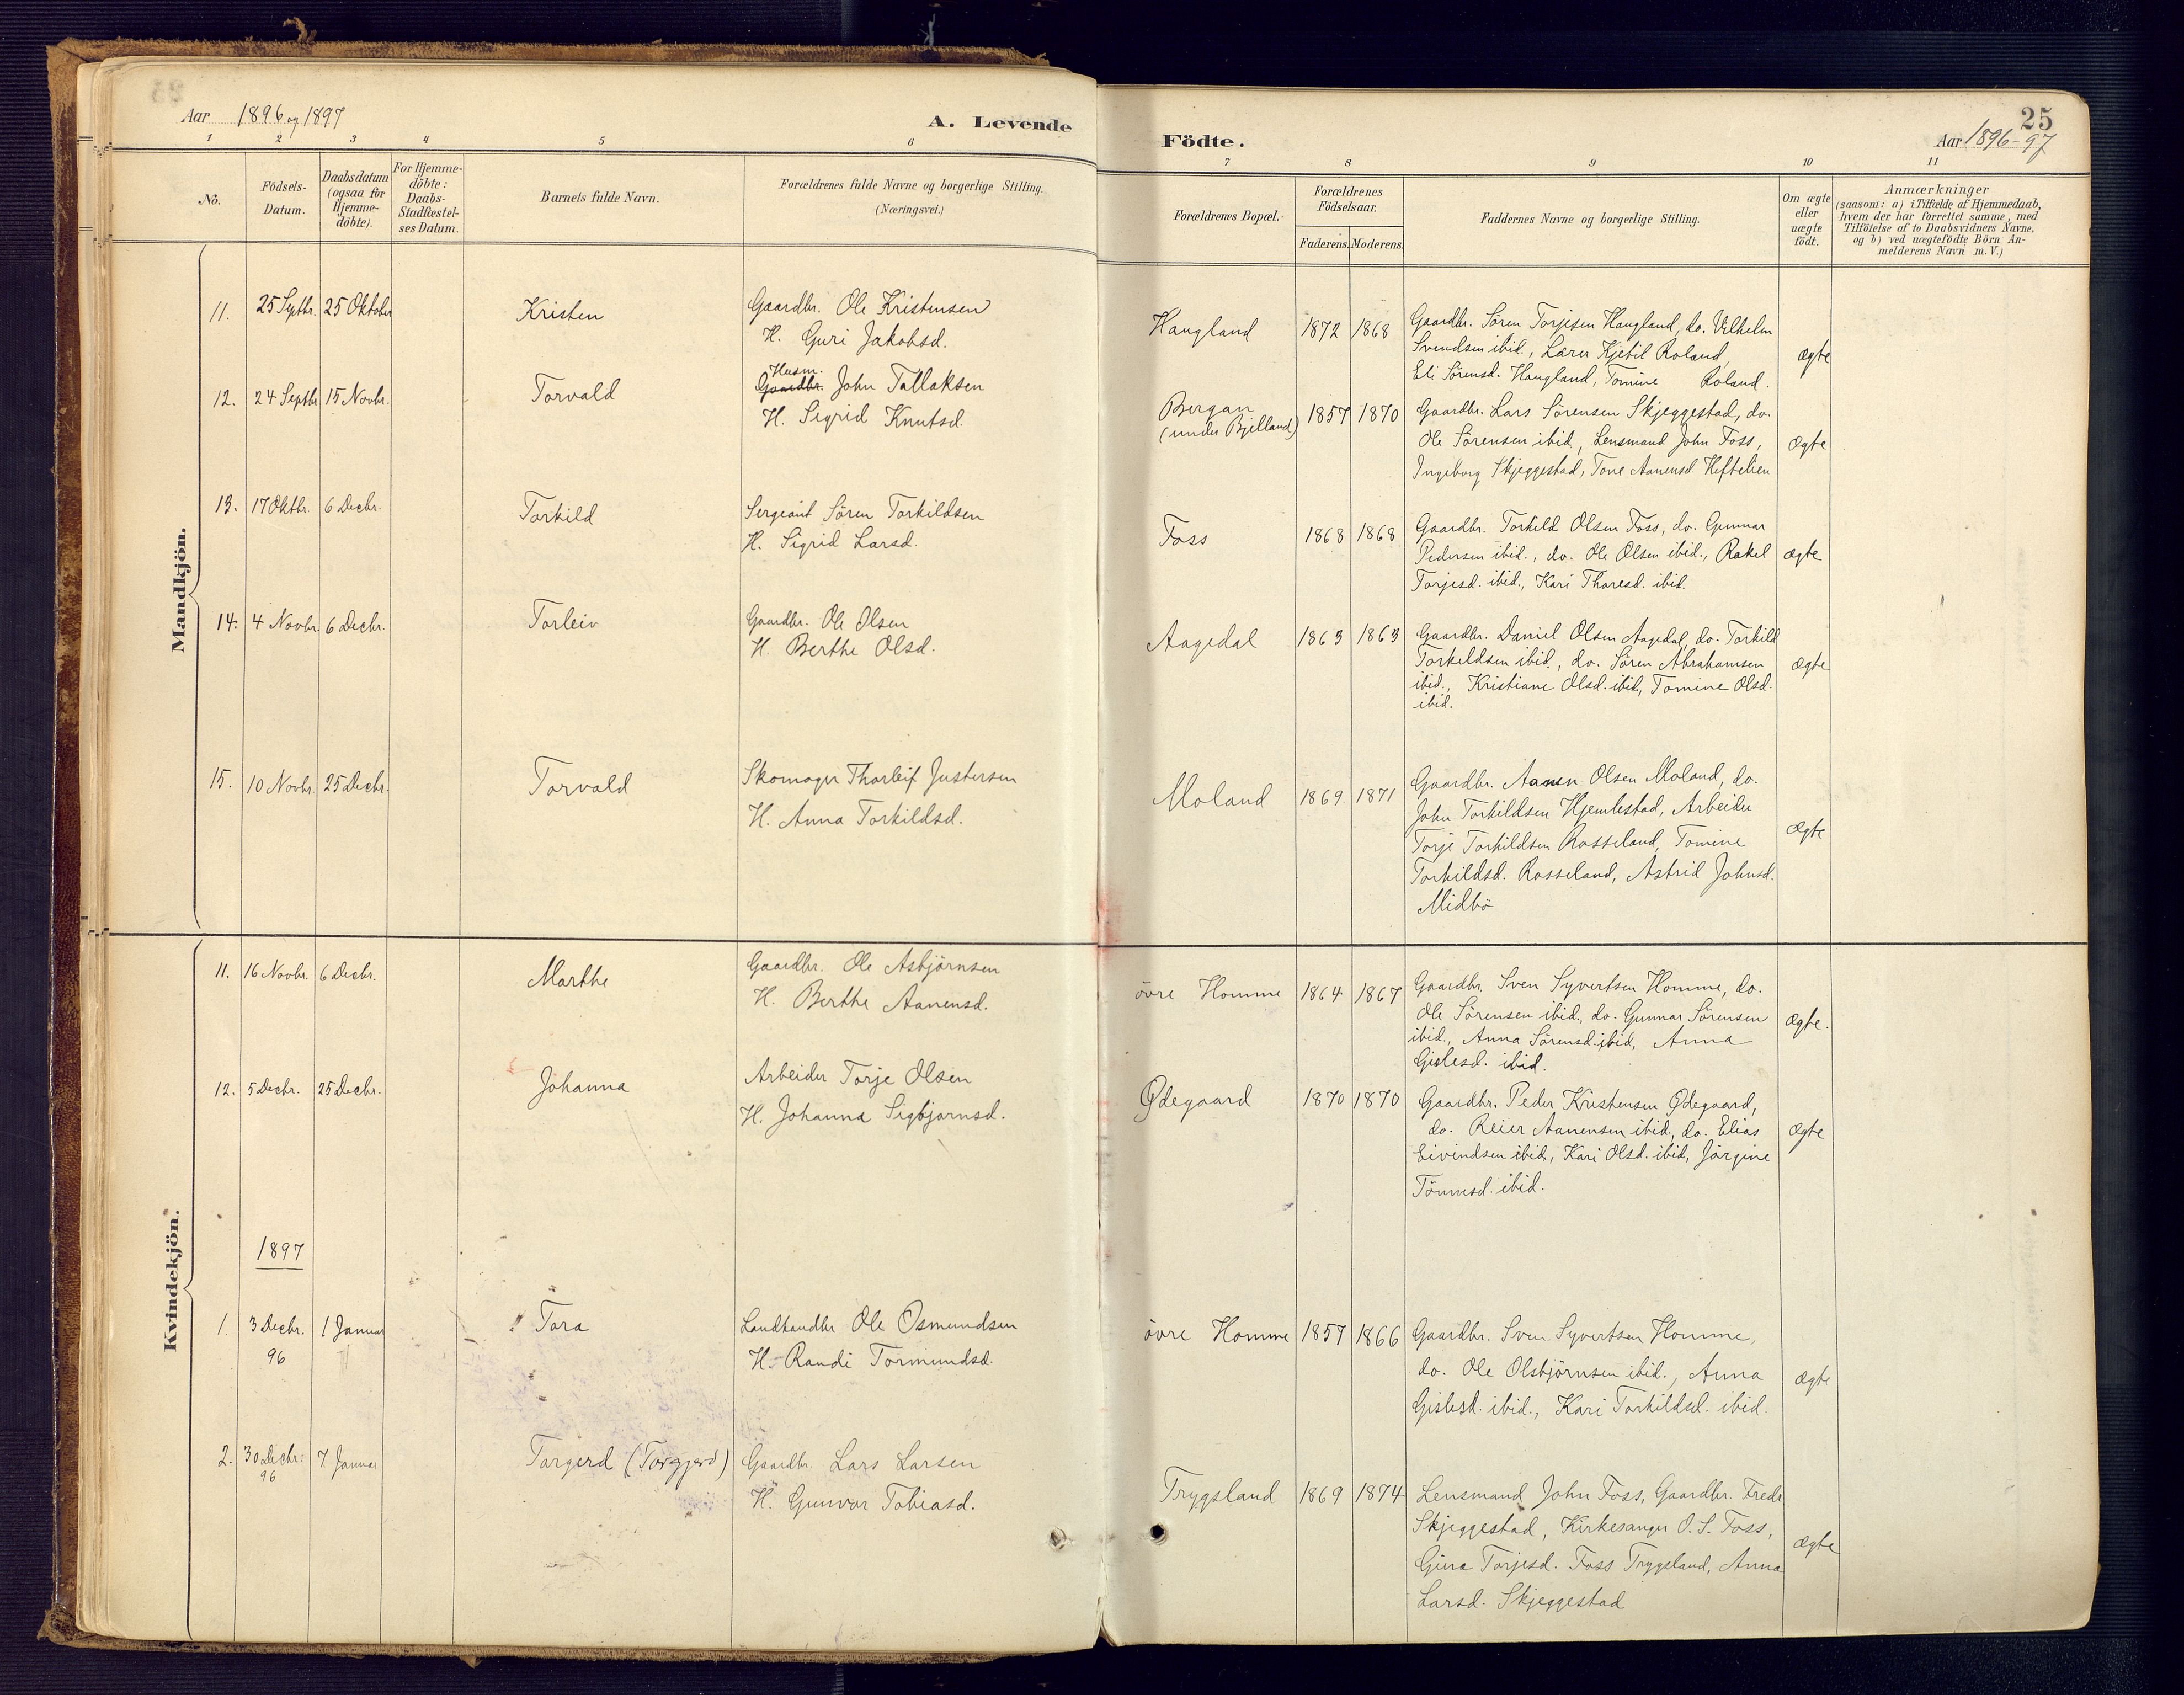 Aar 1896 og 1897
A. Levende
Födte.
25
Aar 1896-97
1 2 3 4 5 6 7 8 9 10 11
No.
Födsels-
Datum.
Daabsdatum
(ogsaa for
Hjemme-
döbte).
For Hjemme-
döbte:
Daabs-
Stadfœstel-
ses Datum.
Barnets fulde Navn.
Forœldrenes fulde Navne og borgerlige Stilling.
(Nœringsvei.)
Forœldrenes Bopœl.
Forœldrenes
Födselsaar.
Faderens. Moderens.
Faddernes Navne og borgerlige Stilling.
Om œgte
eller
uœgte
födt.
Anmœrkninger
(saasom: a) i Tilfœlde af Hjemmedaab,
hvem der har forrettet samme, med
Tilföielse af to Daabsvidners Navne.
og b) ved uœgtefödte Börn An-
melderens Navn m. V.)
Mandkjön.
11. 25 Septbr. 25 Oktober Kristen
Gaardbr. Ole Kristensen
H. Guri Jakobsd.
Haugland 1872 1868
Gaardbr. Sören Torjesen Haugland, do. Vilhelm
Svendsen ibid., Lærer Kjetil Roland,
Eli Sörensd. Haugland, Tomine Roland.
ægte
12. 24 Septbr 15 Novbr. Torvald
Husm.
Gaardbr. John Tallaksen
H. Sigrid Knutsd.
Bergan
(under Bjelland) 1857 1870
Gaardbr. Lars Sörensen Skjeggestad, do.
Ole Sörensen ibid, Lensmand John Foss,
Ingeborg Skjeggestad, Tone Aanensd. Heftelien
Ægte
13. 17 Oktbr. 6 Decbr. Torkild
Sergeant Sören Torkildsen
H. Sigrid Larsd.
Foss 1868 1868
Gaardbr. Torkild Olsen Foss, do. Gunnar
Pedersen ibid., do. Ole Olsen ibid., Rakel
Torjesd. ibid., Kari Thoresd. ibid.
ægte
14. 4 Novbr. 6 Decbr. Torleiv
Gaardbr. Ole Olsen
H. Berthe Olsd.
Aagedal 1863 1863
Gaardbr. Daniel Olsen Aagedal, do. Torkild
Torkildsen ibid., do. Sören Abrahamsen
ibid., Kristiane Olsd. ibid, Tomine Olsd.
ibid.
Ægte
15. 10 Novbr. 25 Decbr. Torvald
Skomager Thorleif Justersen
H. Anna Torkildsd.
Moland 1869 1871
Gaardbr. Aanen Olsen Moland, do.
John Torkildsen Hjemlestad, Arbeider
Torje Torkildsen Rosseland, Tomine
Torkildsd. Rosseland, Astrid Johnsd.
Midbö
Ægte
Kvindekjön.
11. 16 Novbr. 6 Decbr. Marthe
Gaardbr. Ole Asbjörnsen
H. Berthe Aanensd.
övre Homme 1864 1867
Gaardbr. Sven Syvertsen Homme, do.
Ole Sörensen ibid., do. Gunnar Sörensen
ibid., Anna Sörensd. ibid, Anna
Gislesd. ibid.
Ægte.
12. 5 Decbr. 25 Decbr. Johanna
Arbeider Torje Olsen
H. Johanna Sigbjørnsd.
Ødegaard 1870 1870
Gaardbr. Peder Kristensen Ødegaard,
do. Reier Aanensen ibid., do. Elias
Eivindsen ibid, Kari Olsd. ibid, Jörgine
Tönnesd. ibid.
Ægte
1897
1. 3 Decbr. 1 Januar Tora
96
Landhandler Ole Osmundsen
H. Randi Tormundsd.
övre Homme 1857 1866
Gaardbr. Sven Syvertsen Homme,
do. Ole Olsbjörnsen ibid., Anna
Gislesd. ibid., Kari Torkildsd. ibid.
Ægte
2. 30 Decbr: 7 Januar Torgerd (Torgjerd)
96
Gaardbr. Lars Larsen
H. Gunvor Tobiasd.
Trygsland 1869 1874
Lensmand John Foss, Gaardbr. Fredr
Skjeggestad, Kirkesanger O. S. Foss,
Gina Torjesd. Foss Trygsland, Anna
Larsd. Skjeggestad
Ægte